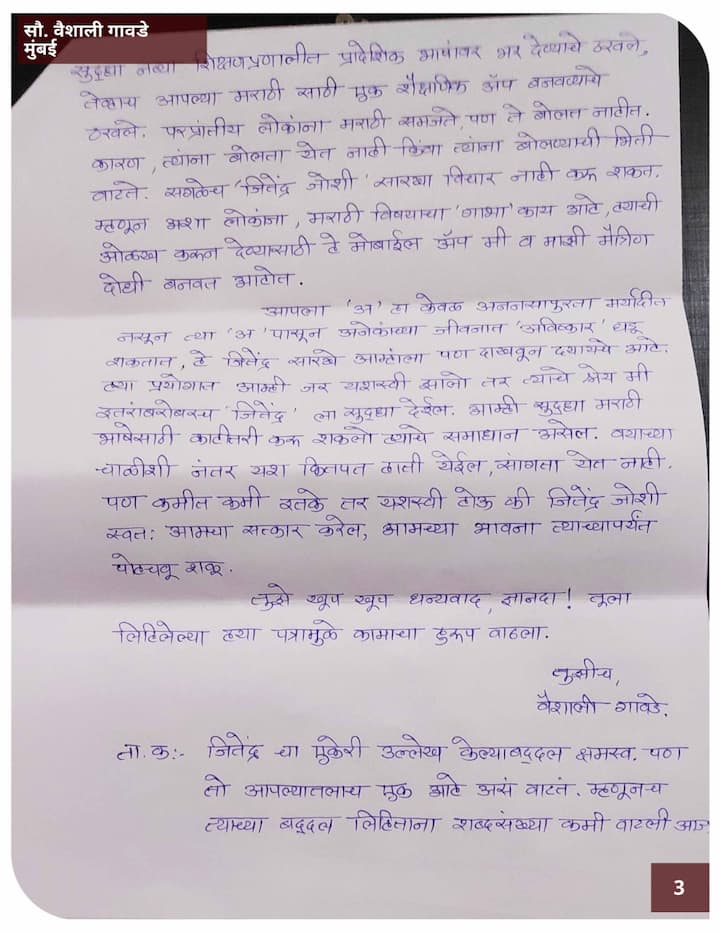 सौ. वैशाली गावडे
मुंबई
सुद्धा नव्या शिक्षणप्रणालीत प्रादेशिक भाषांवर भर देण्याचे ठरवले,
तेव्हाच आपल्या मराठी साठी एक शैक्षणिक ॲप बनवण्याचे
ठरवले. परप्रांतीय लोकांना मराठी समजते, पण ते बोलत नाहीत.
कारण, त्यांना बोलता येत नाही किंवा त्यांना बोलण्याची भिती
वाटते. सगळेच 'जितेंद्र जोशी' सारखा विचार नाही करू शकत.
म्हणून अशा लोकांना, मराठी विषयाचा 'गाभा' काय आहे, ह्याची
ओळख करून देण्यासाठी हे मोबाईल ॲप मी व माझी मैत्रिण
दोघी बनवत आहोत.
आपला 'अ' हा केवळ अननसापुरता मर्यादीत
नसून त्या 'अ' पासून अनेकांच्या जीवनात 'अविष्कार' घडू
शकतात, हे जितेंद्र सारखे आम्हांला पण दाखवून द्यायचे आहे.
ह्या प्रयोगात आम्ही जर यशस्वी झालो तर त्याचे श्रेय मी
इतरांबरोबरच 'जितेंद्र' ला सुद्धा देईल. आम्ही सुद्धा मराठी
भाषेसाठी काहीतरी करू शकलो ह्याचे समाधान असेल. वयाच्या
चाळीशी नंतर यश कितपत हाती येईल, सांगता येत नाही.
पण कमीत कमी इतके तर यशस्वी होऊ की जितेंद्र जोशी
स्वत: आमचा सत्कार करेल, आमच्या भावना त्याच्यापर्यंत
पोहचवू शकू.
तुझे खूप खूप धन्यवाद, ज्ञानदा! तूला
लिहिलेल्या ह्या पत्रामुळे कामाचा हुरूप वाढला.
तुझीच,
वैशाली गावडे.
ता.क:- जितेंद्र चा एकेरी उल्लेख केल्याबद्दल क्षमस्व. पण
तो आपल्यातलाच एक आहे असं वाटतं. म्हणूनच
त्याच्या बद्दल लिहिताना शब्दसंख्या कमी वाटली
3